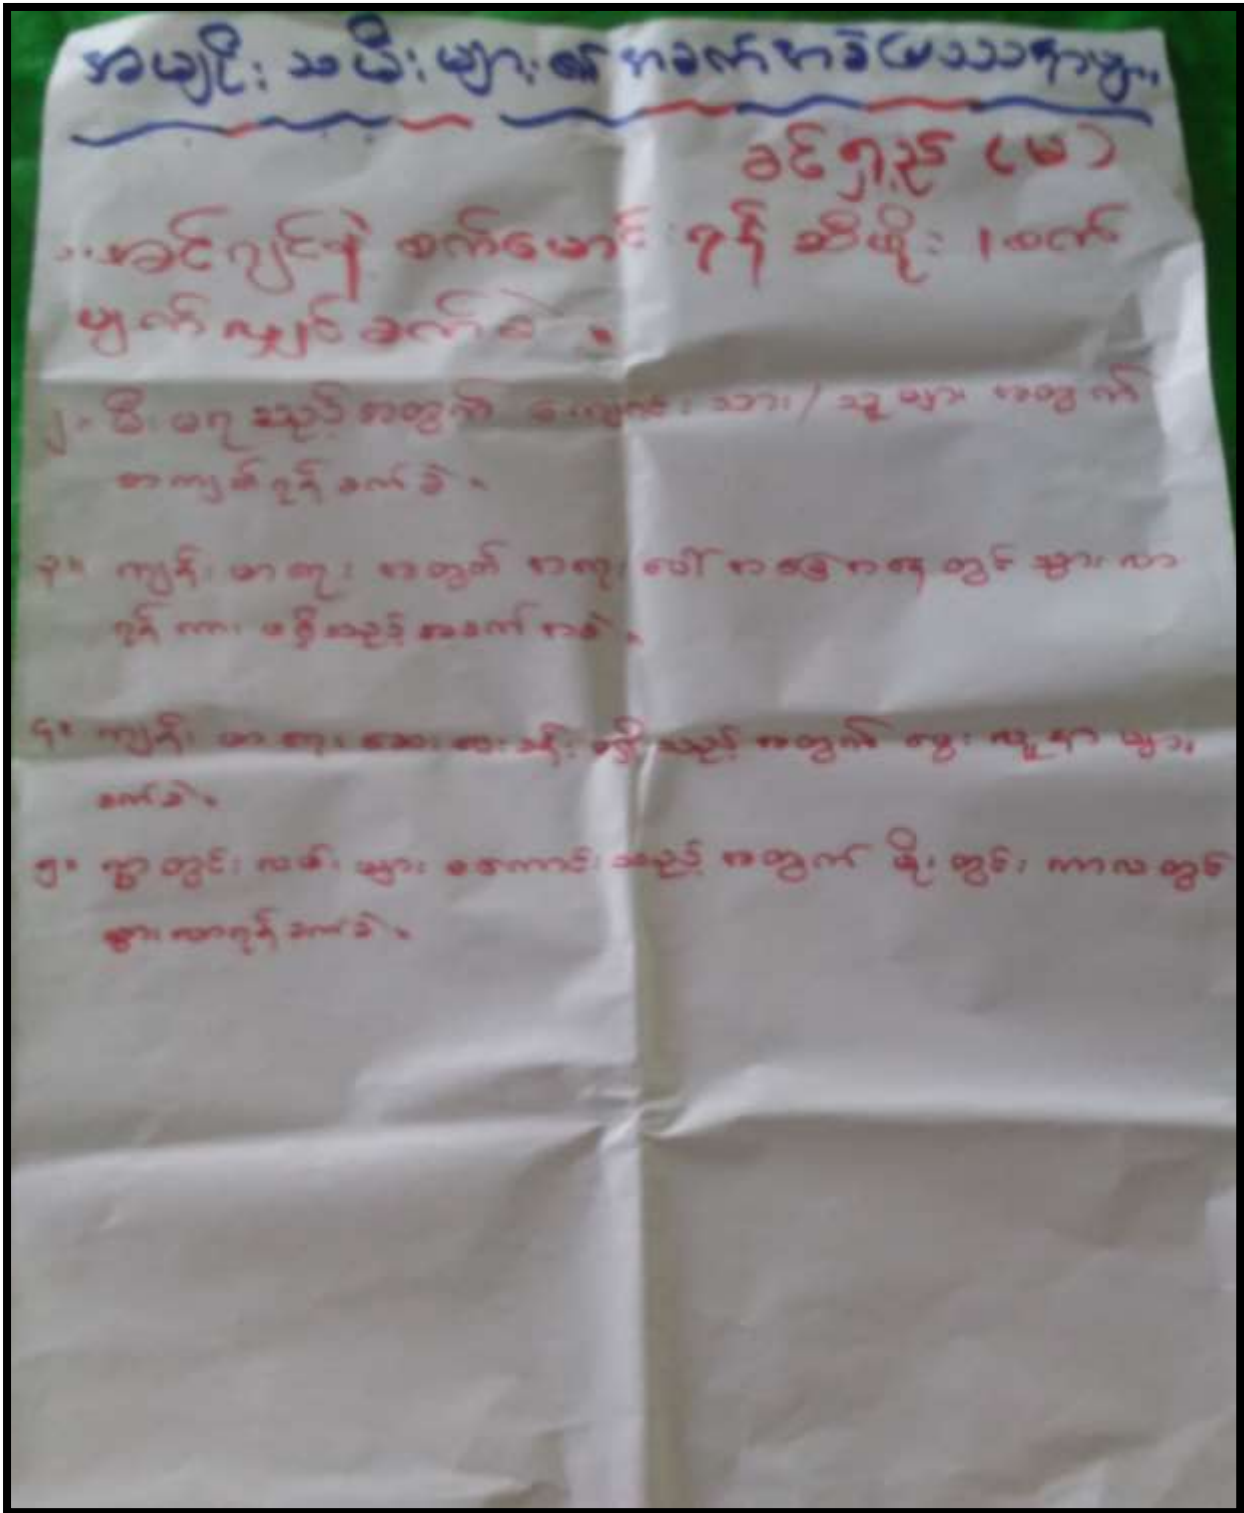 အမျိုးသမီးများ၏အခက်အခဲပြဿနာများ
ခင်ရှည် (မ)
၁။ အင်ဂျင်နဲ့ စက်မောင်းရန် ဆီဖိုး ၊ စက်
ပျက်လျှင်ခက်ခဲ။
၂။ မီးမရသည့်အတွက် ကျောင်းသား/သူများ အတွက်
စာကျက်ရန်ခက်ခဲ။
၃။ ကျန်းမာရေး အတွက် အရေးပေါ်အခြေအနေတွင် သွားလာ
ရန် ကားမရှိသည့်အခက်အခဲ။
၄။ ကျန်းမာရေးဆေးပေးခန်းမရှိသည့်အတွက် မွေးလူနာများ
ခက်ခဲ။
၅။ ရွာတွင်းလမ်းများမကောင်းသည့်အတွက် မိုးတွင်းကာလတွင်
သွားလာရန်ခက်ခဲ။